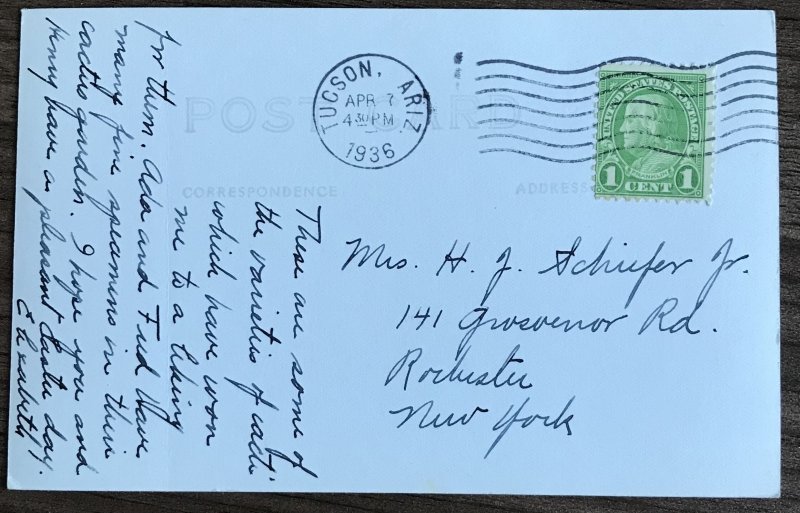 POST CARD
TUCSON, ARIZ
APR 7
4 30 PM
1936
UNITED STATES POSTAGE
FRANKLIN
1 CENT 1
CORRESPONDENCE
ADDRESS
These are some of
the varieties of cacti
which have won
me to a liking
for them. Ada and Fred have
many fine specimens in their
cactus garden. I hope you and
Henry have a pleasant Easter day.
Elizabeth
Mrs. H. J. Schiefer Jr.
141 Grosvenor Rd.
Rochester
New York